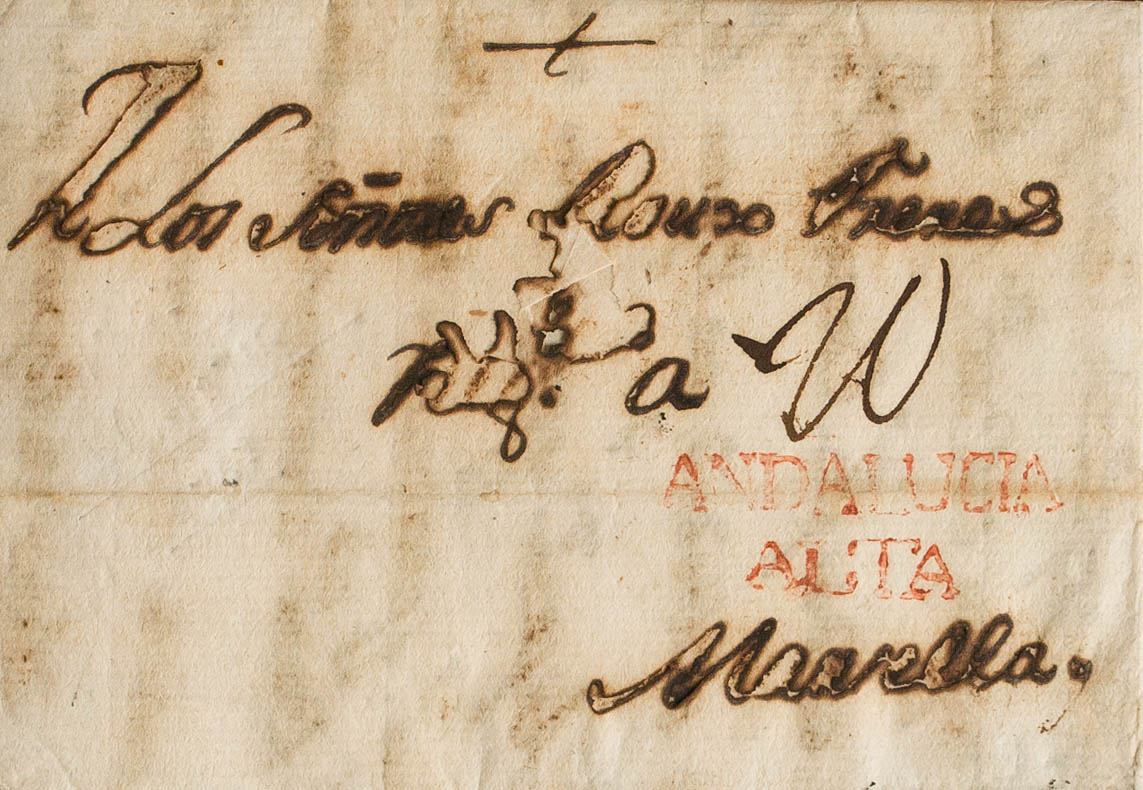 A Los Señores Roux Freres
a
ANDALUCIA
ALTA
Marsella.